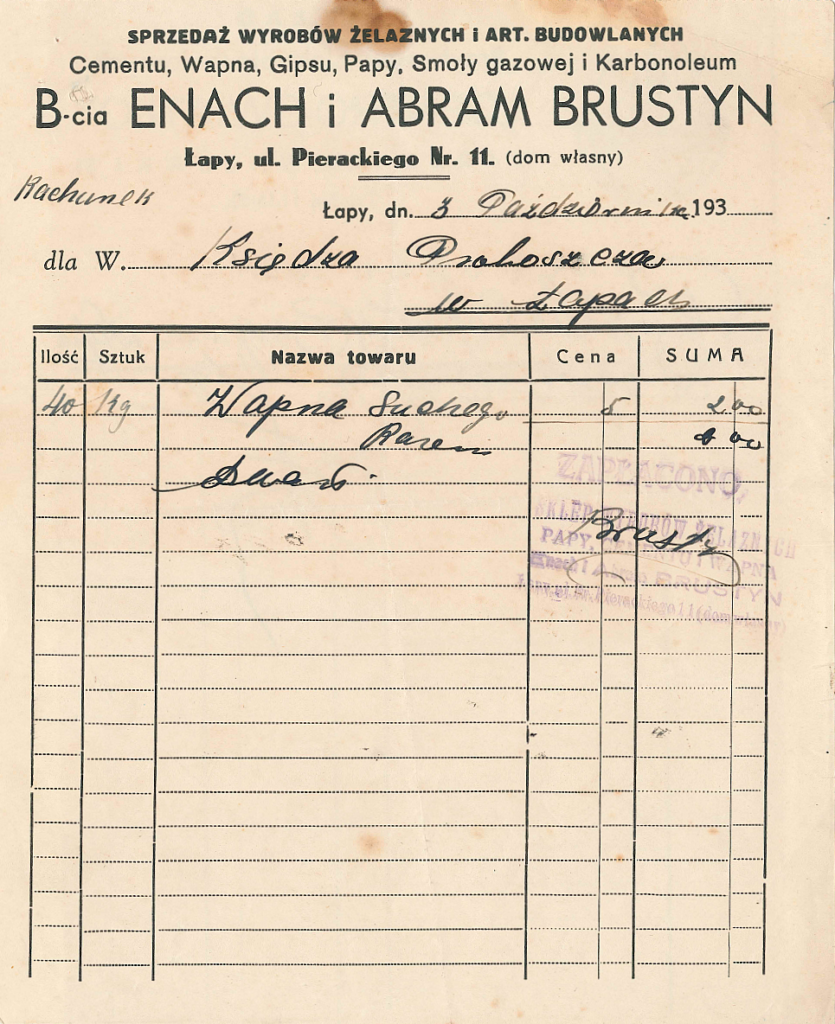 SPRZEDAŻ WYROBÓW ŻELAZNYCH i ART. BUDOWLANYCH
Cementu, Wapna, Gipsu, Papy, Smoły gazowej i Karbonoleum
B-cia ENACH i ABRAM BRUSTYN
Łapy, ul. Pierackiego Nr. 11. (dom własny)
Rachunek
Łapy, dn. 3 Października 193
dla W. Księdza Proboszcza
w Łapach
Ilość Sztuk Nazwa towaru Cena SUMA
40 Kg Wapna Suchego 5 2 00
Razem 00
ZAPŁACONO,
SKLEP WYROBÓW ŻELAZNYCH
Brustyn
PAPY, CEMENTU i WAPNA
Enach i Abram BRUSTYN
Łapy, ul. Br. Pierackiego 11 (dom własny)